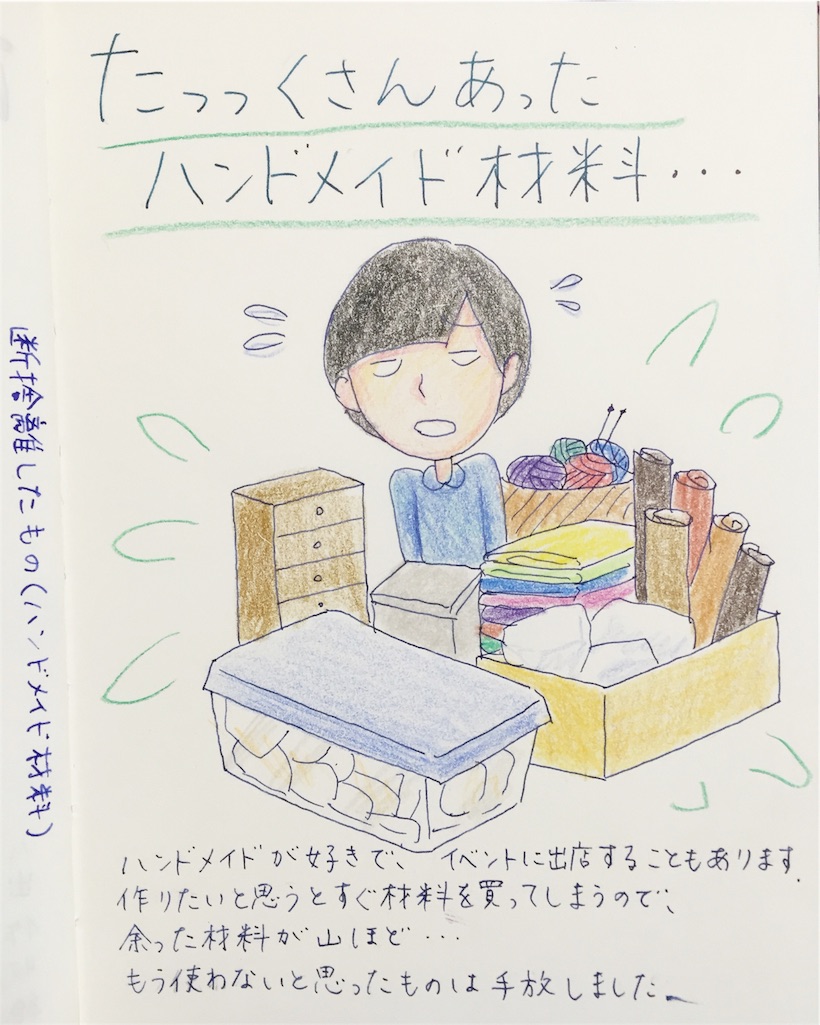 たっっくさんあった
ハンドメイド材料・・・
断捨離したもの(ハンドメイド材料)
ハンドメイドが好きで、イベントに出店することもあります.
作りたいと思うとすぐ材料を買ってしまうので、
余った材料が山ほど・・・
もう使わないと思ったものは手放しました。